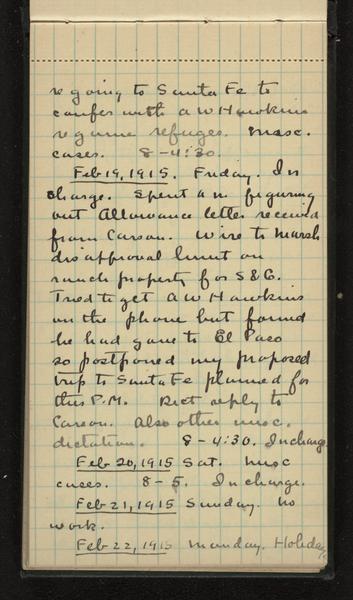 re going to Santa Fe to
confer with A W Hawkins
re game refuges. Misc.
cases. 8-4:30.
Feb 19, 1915. Friday. In
charge. Spent a m. figuring
out Allowance letter received
from Carson. Wire to Marsh
disapproval limit on
ranch property for S&G.
Tried to get A W Hawkins
on the phone but found
he had gone to El Paso
so postponed my proposed
trip to Santa Fe planned for
this P.M. Dict reply to
Carson. Also other misc.
dictation. 8-4:30. In charge
Feb 20, 1915 Sat. Misc
cases. 8-5. In charge.
Feb 21, 1915 Sunday. No
work.
Feb 22, 1915 Monday. Holiday